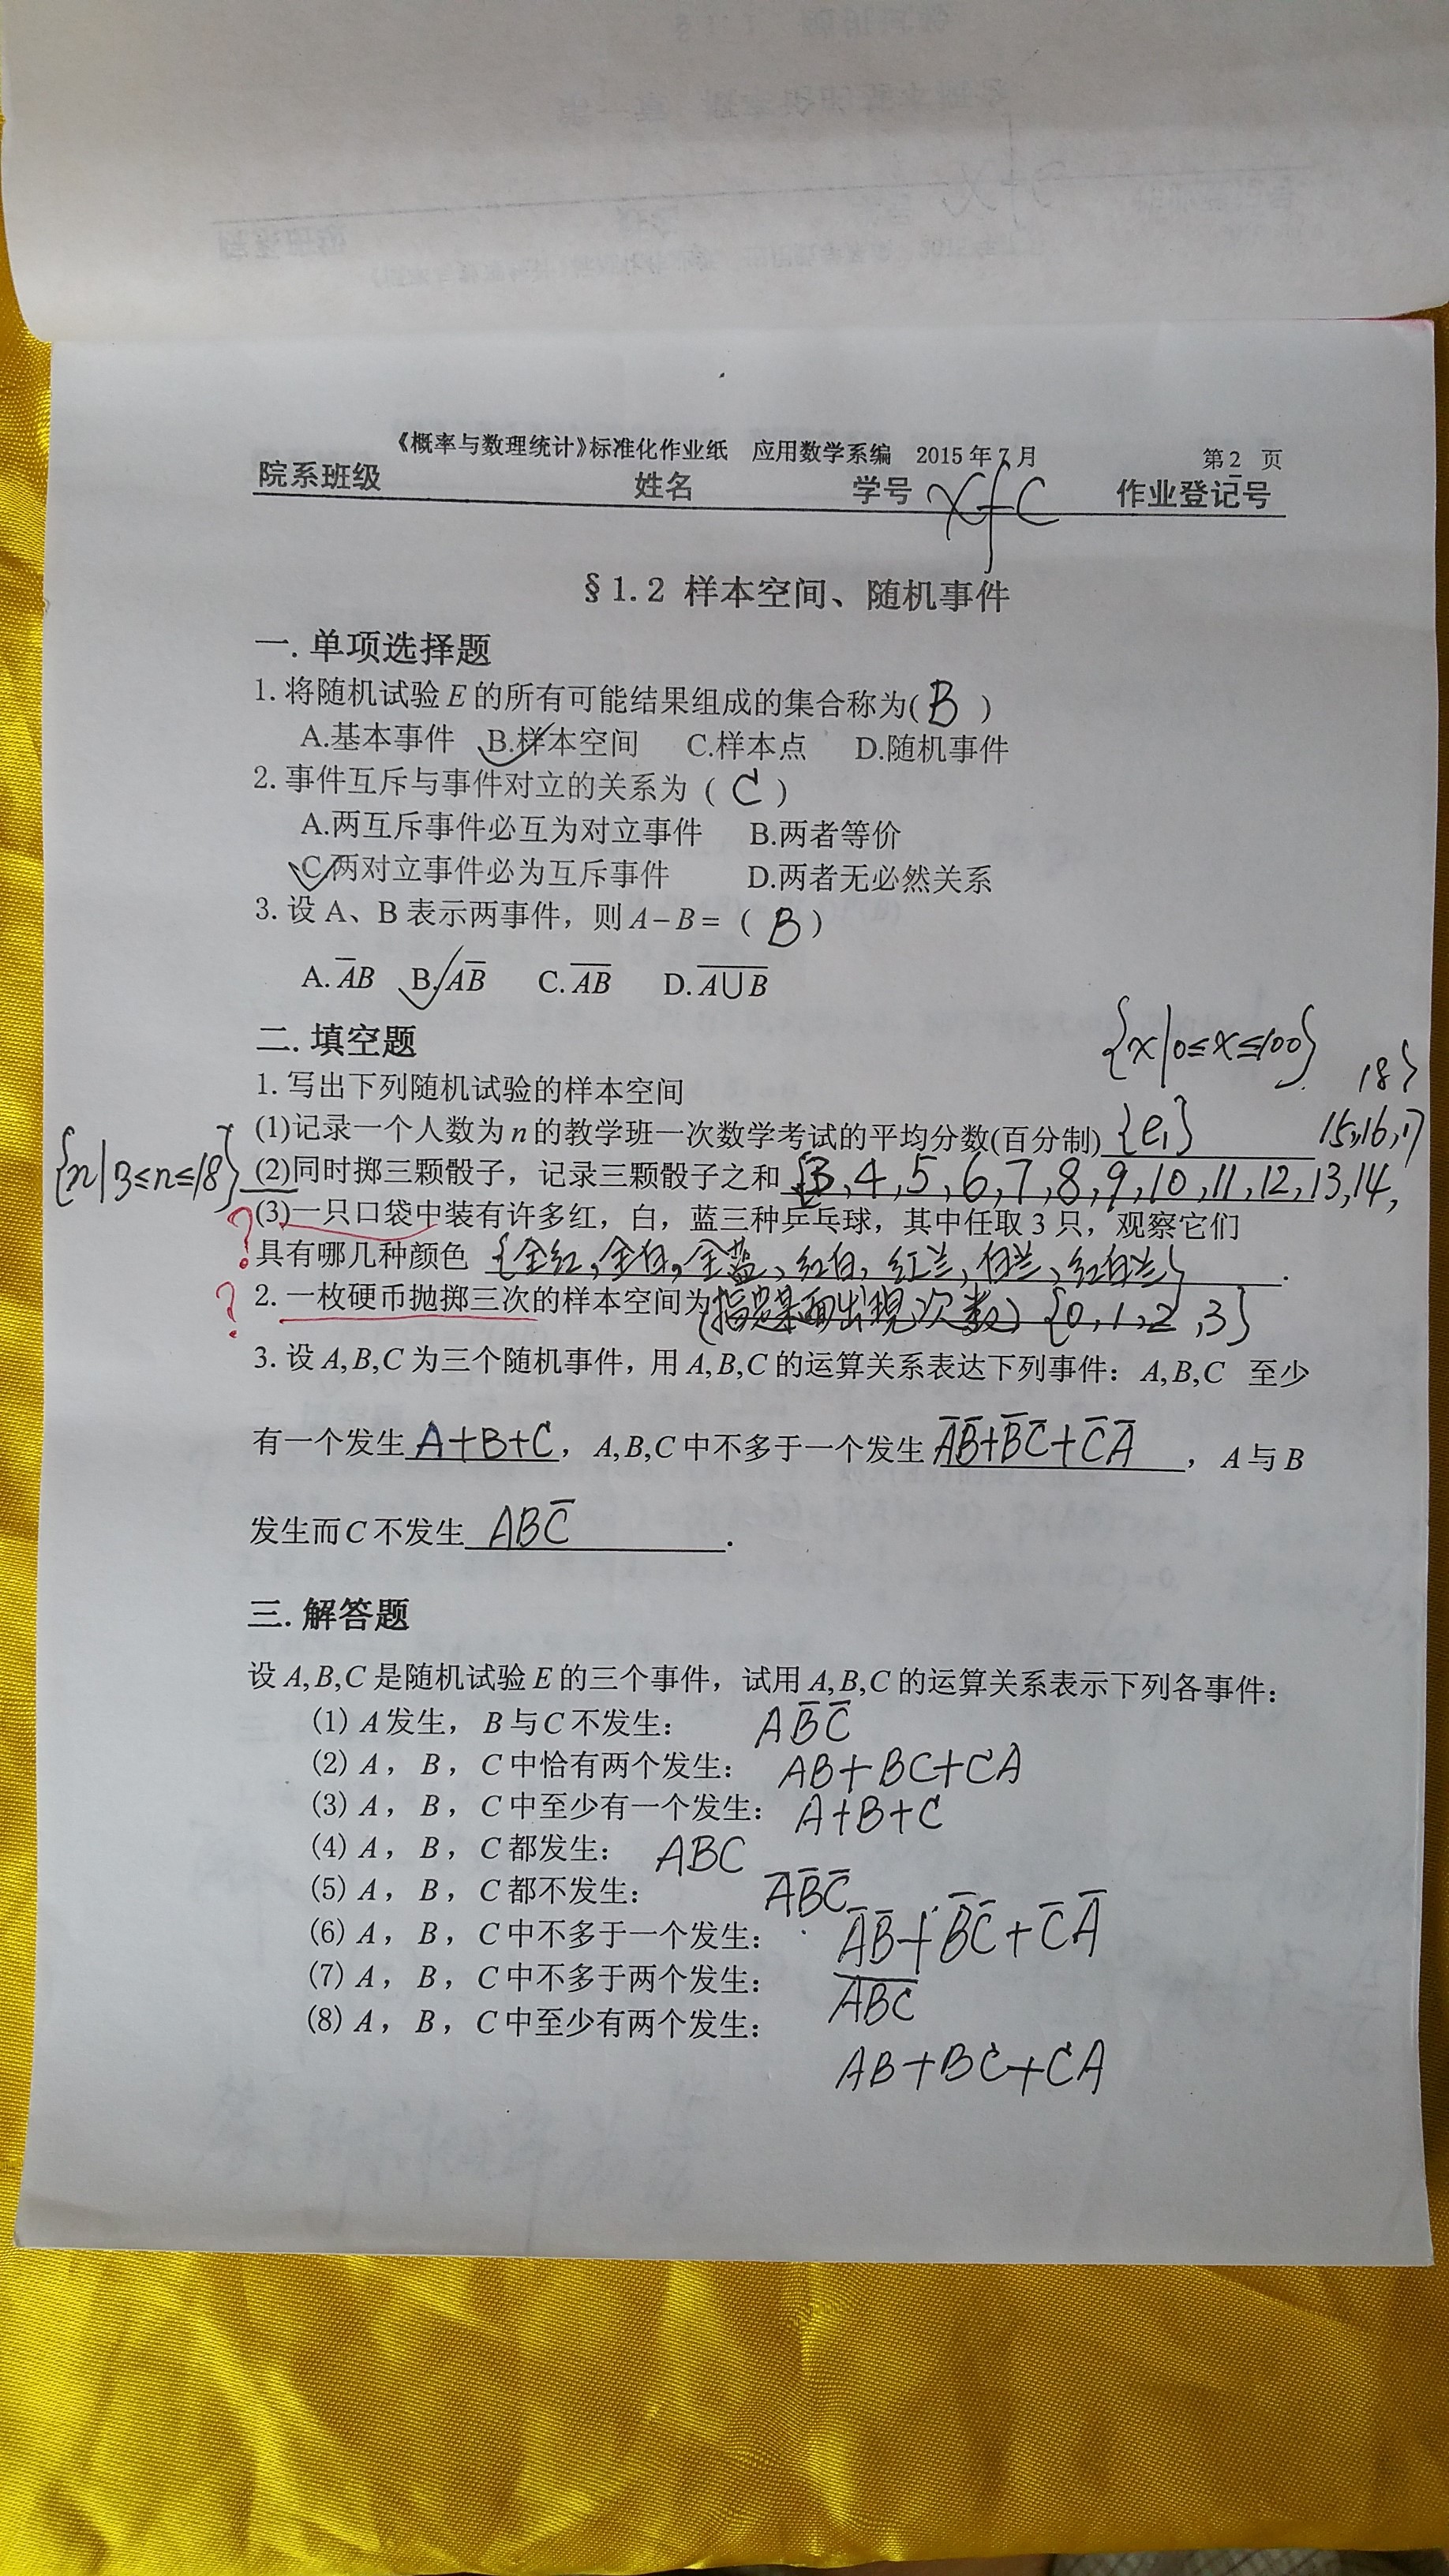 《概率与数理统计》标准化作业纸 应用数学系编 2015年7月 第2页
院系班级 姓名 学号 作业登记号
§1.2 样本空间、随机事件
一. 单项选择题
1. 将随机试验E的所有可能结果组成的集合称为( B )
A.基本事件 B.样本空间 C.样本点 D.随机事件
2. 事件互斥与事件对立的关系为 ( C )
A.两互斥事件必互为对立事件 B.两者等价
C.两对立事件必为互斥事件 D.两者无必然关系
3. 设 A、B 表示两事件，则 A−B= ( B )
A. A̅B B. AB̅ C. A̅B̅ D. A̅⋃̅B̅
二. 填空题
{x|0≤x≤100}
1. 写出下列随机试验的样本空间
(1)记录一个人数为n的教学班一次数学考试的平均分数(百分制) {e₁}
{n|3≤n≤18}
(2)同时掷三颗骰子，记录三颗骰子之和 {3,4,5,6,7,8,9,10,11,12,13,14,
15,16,17
18}
? (3)一只口袋中装有许多红，白，蓝三种乒乓球，其中任取3只，观察它们
具有哪几种颜色 {全红,全白,全蓝、红白,红兰,白兰、红白兰}.
? 2. 一枚硬币抛掷三次的样本空间为(指定某面出现次数) {0,1,2,3}
3. 设A,B,C为三个随机事件，用A,B,C的运算关系表达下列事件：A,B,C 至少
有一个发生 A+B+C，A,B,C中不多于一个发生 A̅B̅+B̅C̅+C̅A̅，A与B
发生而C不发生 ABC̅.
三. 解答题
设A,B,C是随机试验E的三个事件，试用A,B,C的运算关系表示下列各事件：
(1) A发生，B与C不发生： AB̅C̅
(2) A，B，C中恰有两个发生： AB+BC+CA
(3) A，B，C中至少有一个发生： A+B+C
(4) A，B，C都发生： ABC
(5) A，B，C都不发生： A̅B̅C̅
(6) A，B，C中不多于一个发生： A̅B̅+B̅C̅+C̅A̅
(7) A，B，C中不多于两个发生： A̅B̅C̅
(8) A，B，C中至少有两个发生： AB+BC+CA